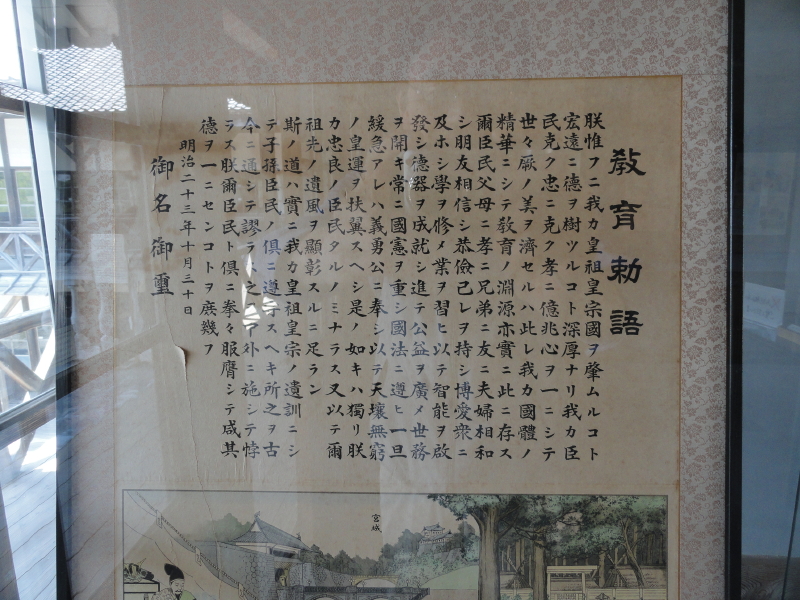 敎育勅語
朕惟フニ我カ皇祖皇宗國ヲ肇ムルコト
宏遠ニ德ヲ樹ツルコト深厚ナリ我カ臣
民克ク忠ニ克ク孝ニ億兆心ヲ一ニシテ
世々厥ノ美ヲ濟セルハ此レ我カ國體ノ
精華ニシテ敎育ノ淵源亦實ニ此ニ存ス
爾臣民父母ニ孝ニ兄弟ニ友ニ夫婦相和
シ朋友相信シ恭儉己レヲ持シ博愛衆ニ
及ホシ學ヲ修メ業ヲ習ヒ以テ智能ヲ啟
發シ德器ヲ成就シ進テ公益ヲ廣メ世務
ヲ開キ常ニ國憲ヲ重シ國法ニ遵ヒ一旦
緩急アレハ義勇公ニ奉シ以テ天壤無窮
ノ皇運ヲ扶翼スヘシ是ノ如キハ獨リ朕
カ忠良ノ臣民タルノミナラス又以テ爾
祖先ノ遺風ヲ顯彰スルニ足ラン
斯ノ道ハ實ニ我カ皇祖皇宗ノ遺訓ニシ
テ子孫臣民ノ俱ニ遵守スヘキ所之ヲ古
今ニ通シテ謬ラス之ヲ中外ニ施シテ悖
ラス朕爾臣民ト俱ニ拳々服膺シテ咸其
德ヲ一ニセンコトヲ庶幾フ
明治二十三年十月三十日
御名御璽
宮城